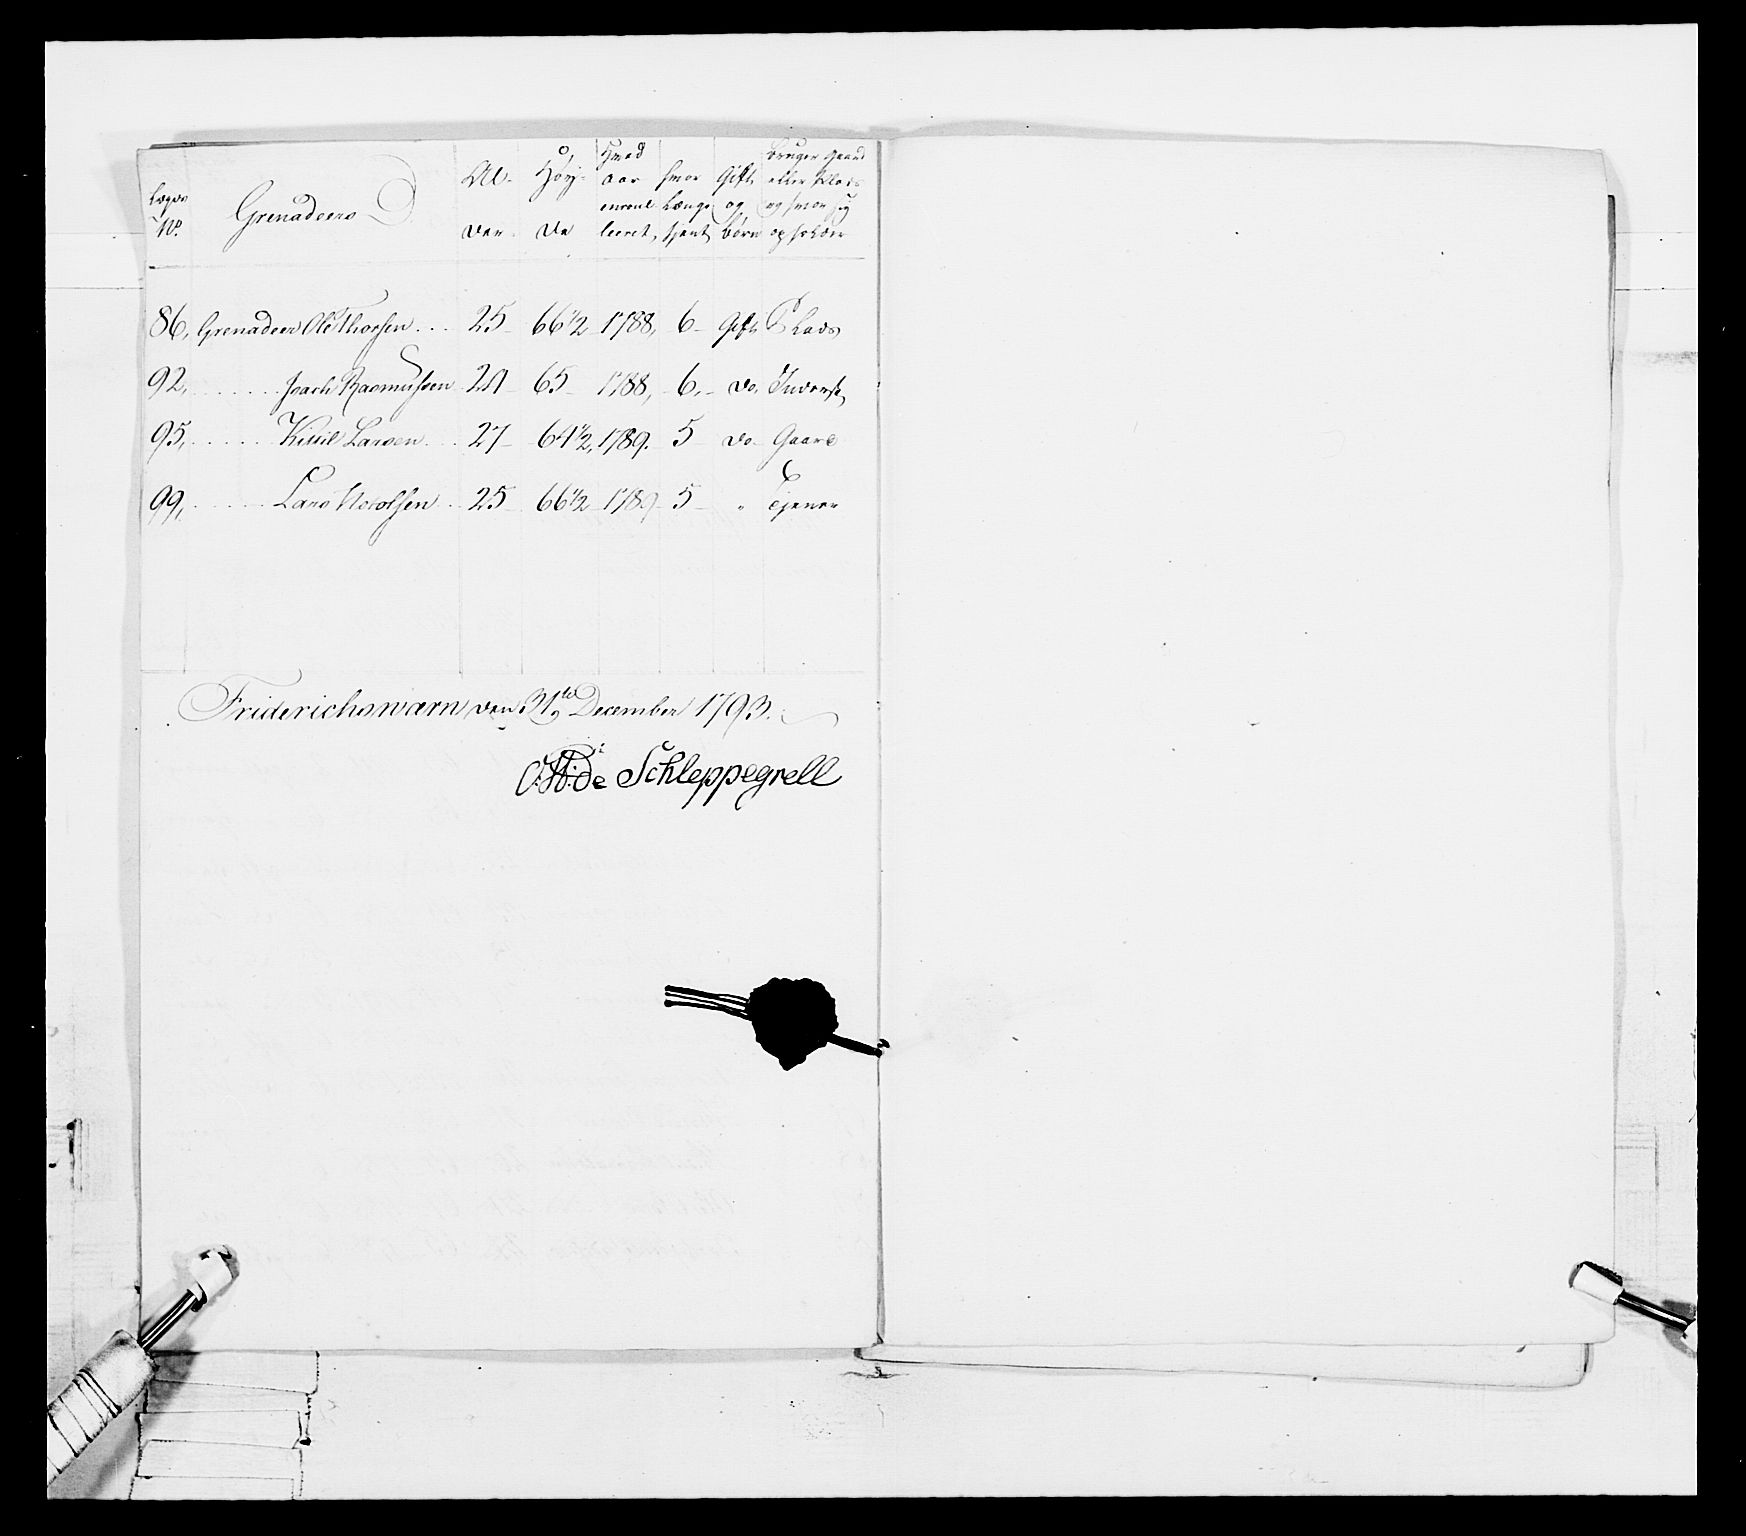 Lægds No. | Grenadeers | Al- der | Høy- de | Hvad aar enroul- leeret, | hvor Længe tjent, | Gift og børn | bruger Gaard eller Plads og hvor sig opholder
86, Grenadeer Ole Thorsen . . . 25 - 66 1/2 - 1788, - 6 - Gift Plads
92, . . . . . . . Isach Rasmussen 24 - 65 - 1788, - 6, - do. Inderst,
95, . . . . . . Kittil Larsen . . . 27 - 64 1/2, 1789. - 5 - do - Gaard
99, . . . . . . Lars . . 25 - 66 1/2 - 1789 - 5 - " Tjener
Friderichswærn den 31te December 1793.
de Schleppegrell